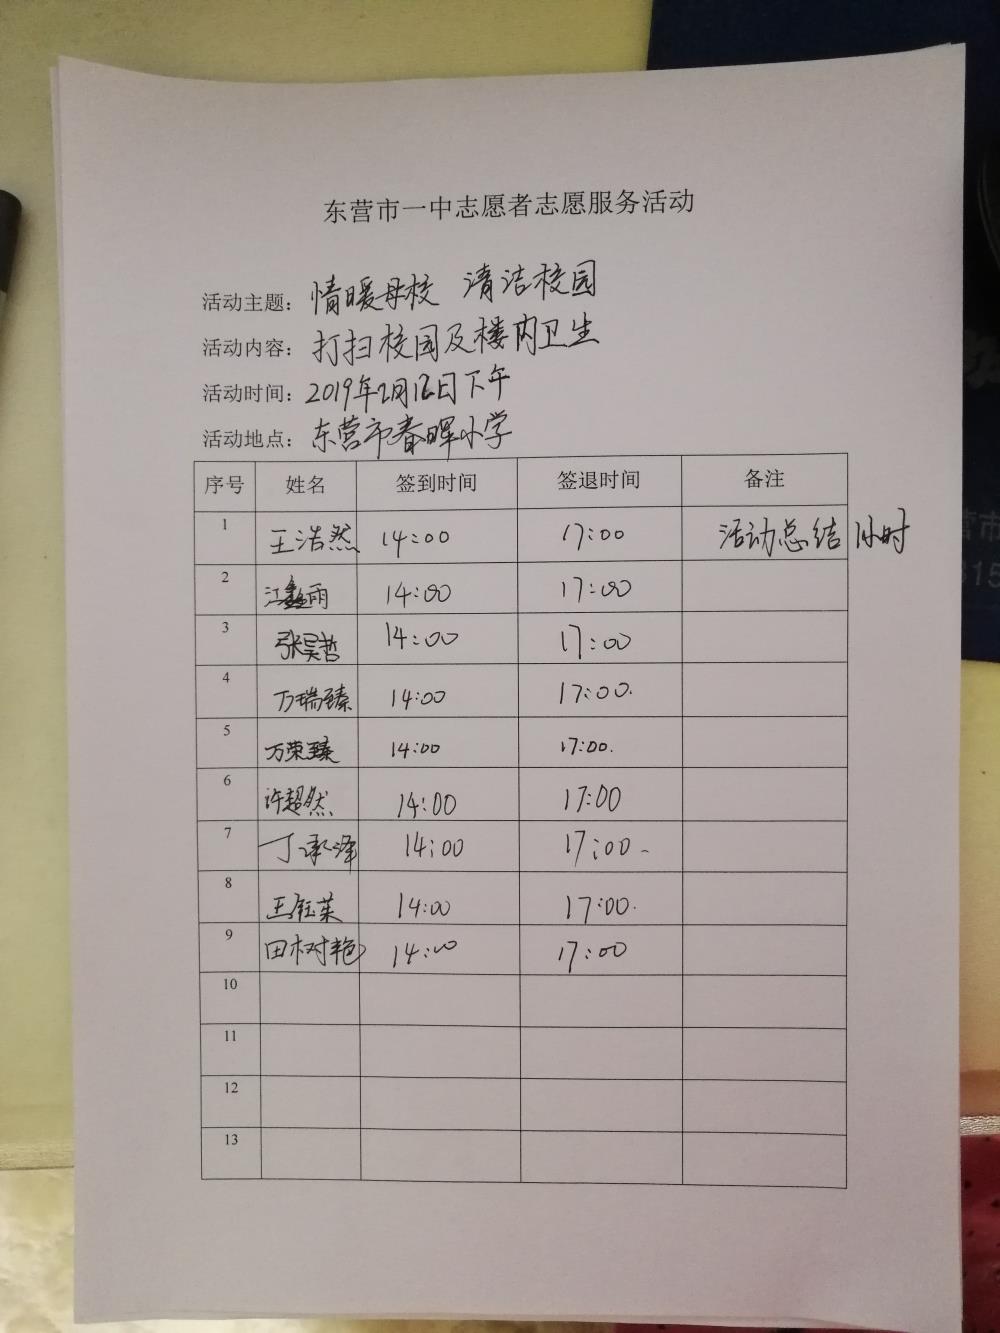 东营市一中志愿者志愿服务活动
活动主题: 情暖母校 清洁校园
活动内容: 打扫校园及楼内卫生
活动时间: 2019年2月16日下午
活动地点: 东营市春晖小学
序号 姓名 签到时间 签退时间 备注
1 王浩然 14:00 17:00 活动总结1小时
2 14:00 17:00
3 张昊哲 14:00 17:00
4 万瑞臻 14:00 17:00.
5 万荣臻 14:00 17:00.
6 许超然 14:00 17:00
7 丁承泽 14:00 17:00
8 王钰茱 14:00 17:00.
9 田树艳 14:00 17:00
10
11
12
13